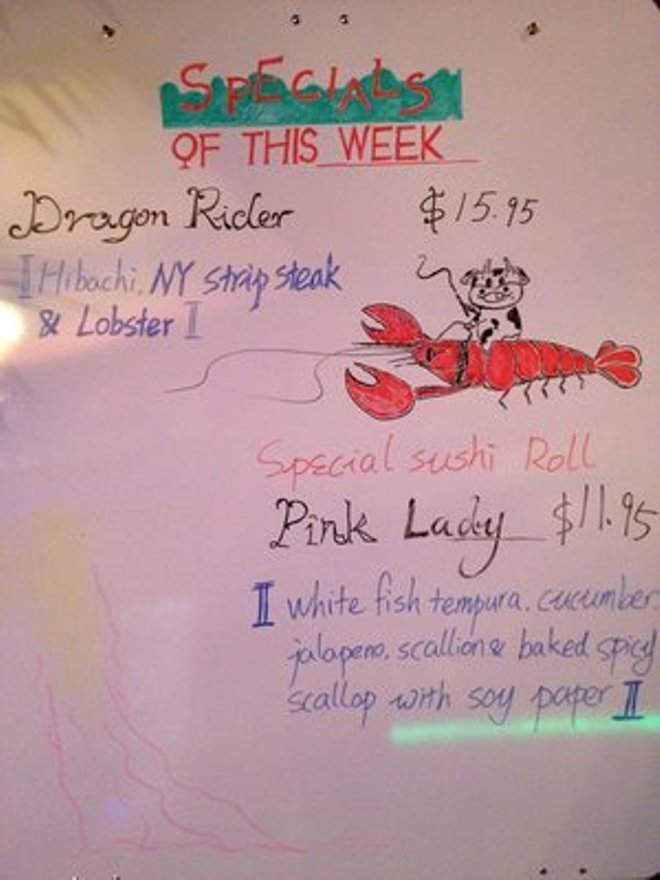 SPECIALS
OF THIS WEEK
Dragon Rider $15.95
Hibachi. NY strip steak
& Lobster
Special sushi Roll
Pink Lady $11.95
White fish tempura. cucumber.
jalapeno. scallion & baked spicy
scallop with soy paper